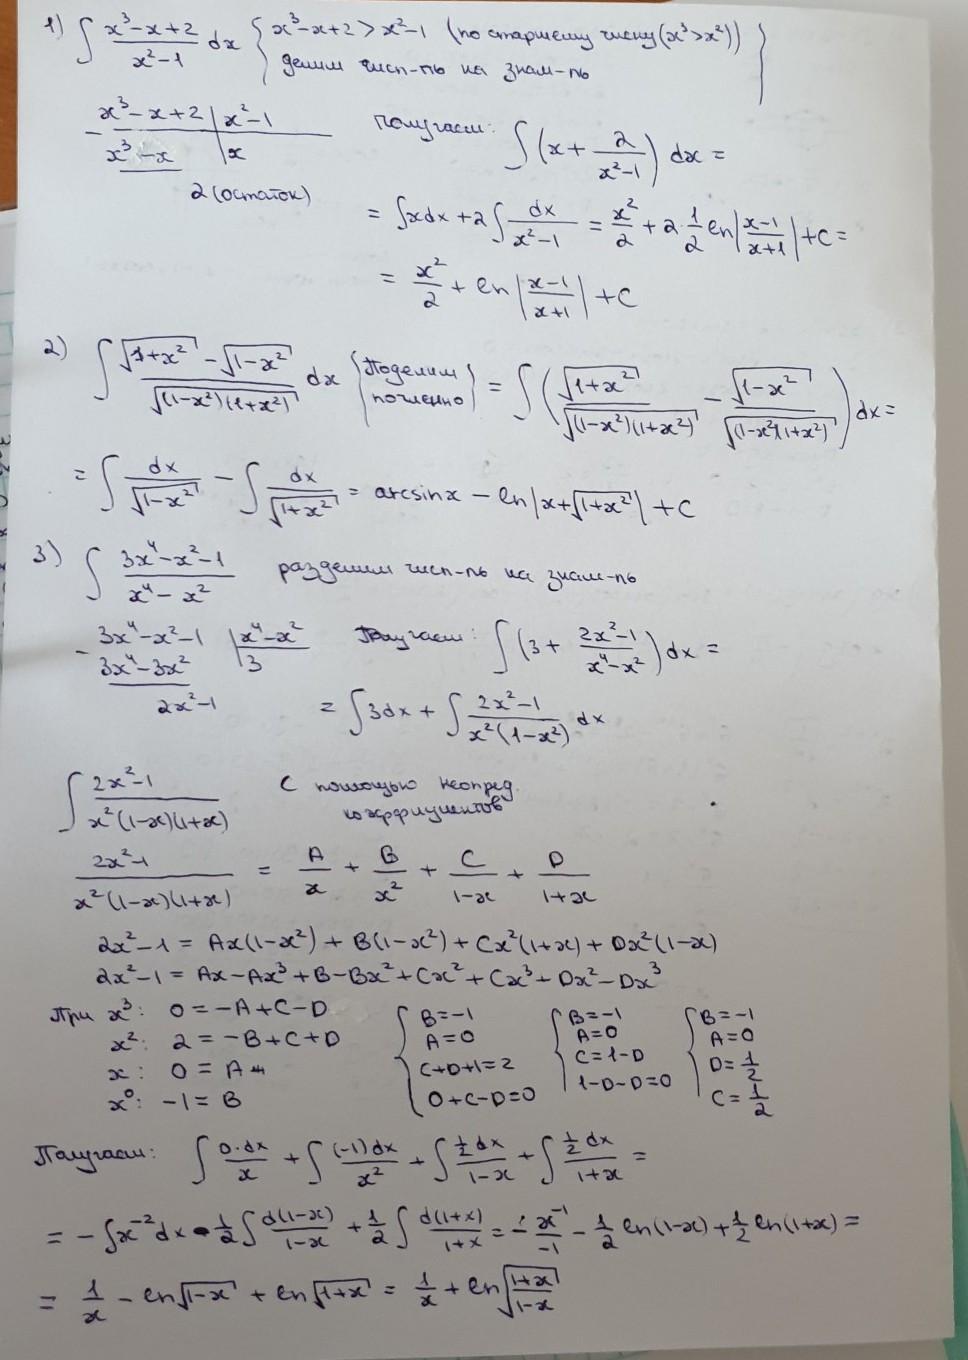 1) ∫ (x³-x+2)/(x²-1) dx { x³-x+2 > x²-1 (по старшему члену (x³>x²))
делим числ-ль на знам-ль }
x³-x+2 | x²-1
- x³-x | x
2 (остаток)
Получаем: ∫ (x + 2/(x²-1)) dx =
= ∫xdx + 2∫ dx/(x²-1) = x²/2 + 2·1/2 ln|(x-1)/(x+1)| + C =
= x²/2 + ln|(x-1)/(x+1)| + C
2) ∫ (√(1+x²) - √(1-x²))/√((1-x²)(1+x²)) dx { Поделим почленно } = ∫ (√(1+x²)/√((1-x²)(1+x²)) - √(1-x²)/√((1-x²)(1+x²))) dx =
= ∫ dx/√(1-x²) - ∫ dx/√(1+x²) = arcsinx - ln|x+√(1+x²)| + C
3) ∫ (3x⁴-x²-1)/(x⁴-x²) разделим числ-ль на знам-ль
- 3x⁴-x²-1 | x⁴-x²
3x⁴-3x² | 3
2x²-1
Получаем: ∫ (3 + (2x²-1)/(x⁴-x²)) dx =
= ∫3dx + ∫ (2x²-1)/(x²(1-x²)) dx
∫ (2x²-1)/(x²(1-x)(1+x)) С помощью неопред.
коэффициентов
(2x²-1)/(x²(1-x)(1+x)) = A/x + B/x² + C/(1-x) + D/(1+x)
2x²-1 = Ax(1-x²) + B(1-x²) + Cx²(1+x) + Dx²(1-x)
2x²-1 = Ax-Ax³+B-Bx²+Cx²+Cx³+Dx²-Dx³
При x³: 0=-A+C-D
x²: 2=-B+C+D
x: 0=A
x⁰: -1=B
{ B=-1
A=0
C+D+1=2
0+C-D=0
{ B=-1
A=0
C=1-D
1-D-D=0
{ B=-1
A=0
D=1/2
C=1/2
Получаем: ∫ 0·dx/x + ∫ (-1)dx/x² + ∫ 1/2 dx/(1-x) + ∫ 1/2 dx/(1+x) =
= -∫x⁻²dx - 1/2 ∫ d(1-x)/(1-x) + 1/2 ∫ d(1+x)/(1+x) = - x⁻¹/-1 - 1/2 ln(1-x) + 1/2 ln(1+x) =
= 1/x - ln√(1-x) + ln√(1+x) = 1/x + ln√((1+x)/(1-x))